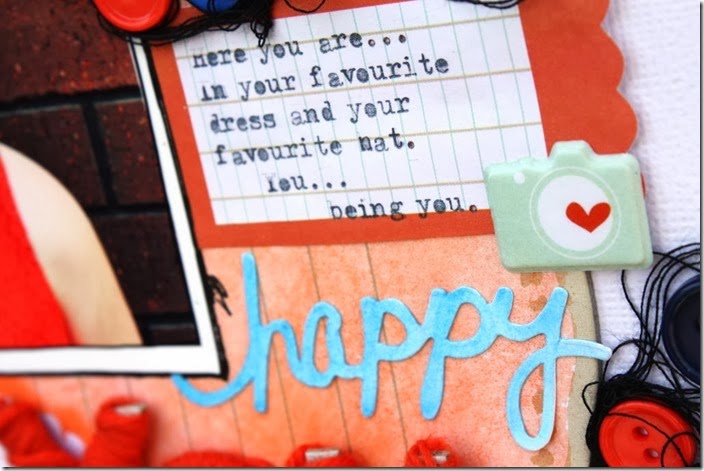 Here you are...
in your favourite
dress and your
favourite hat.
You...
being you.
happy